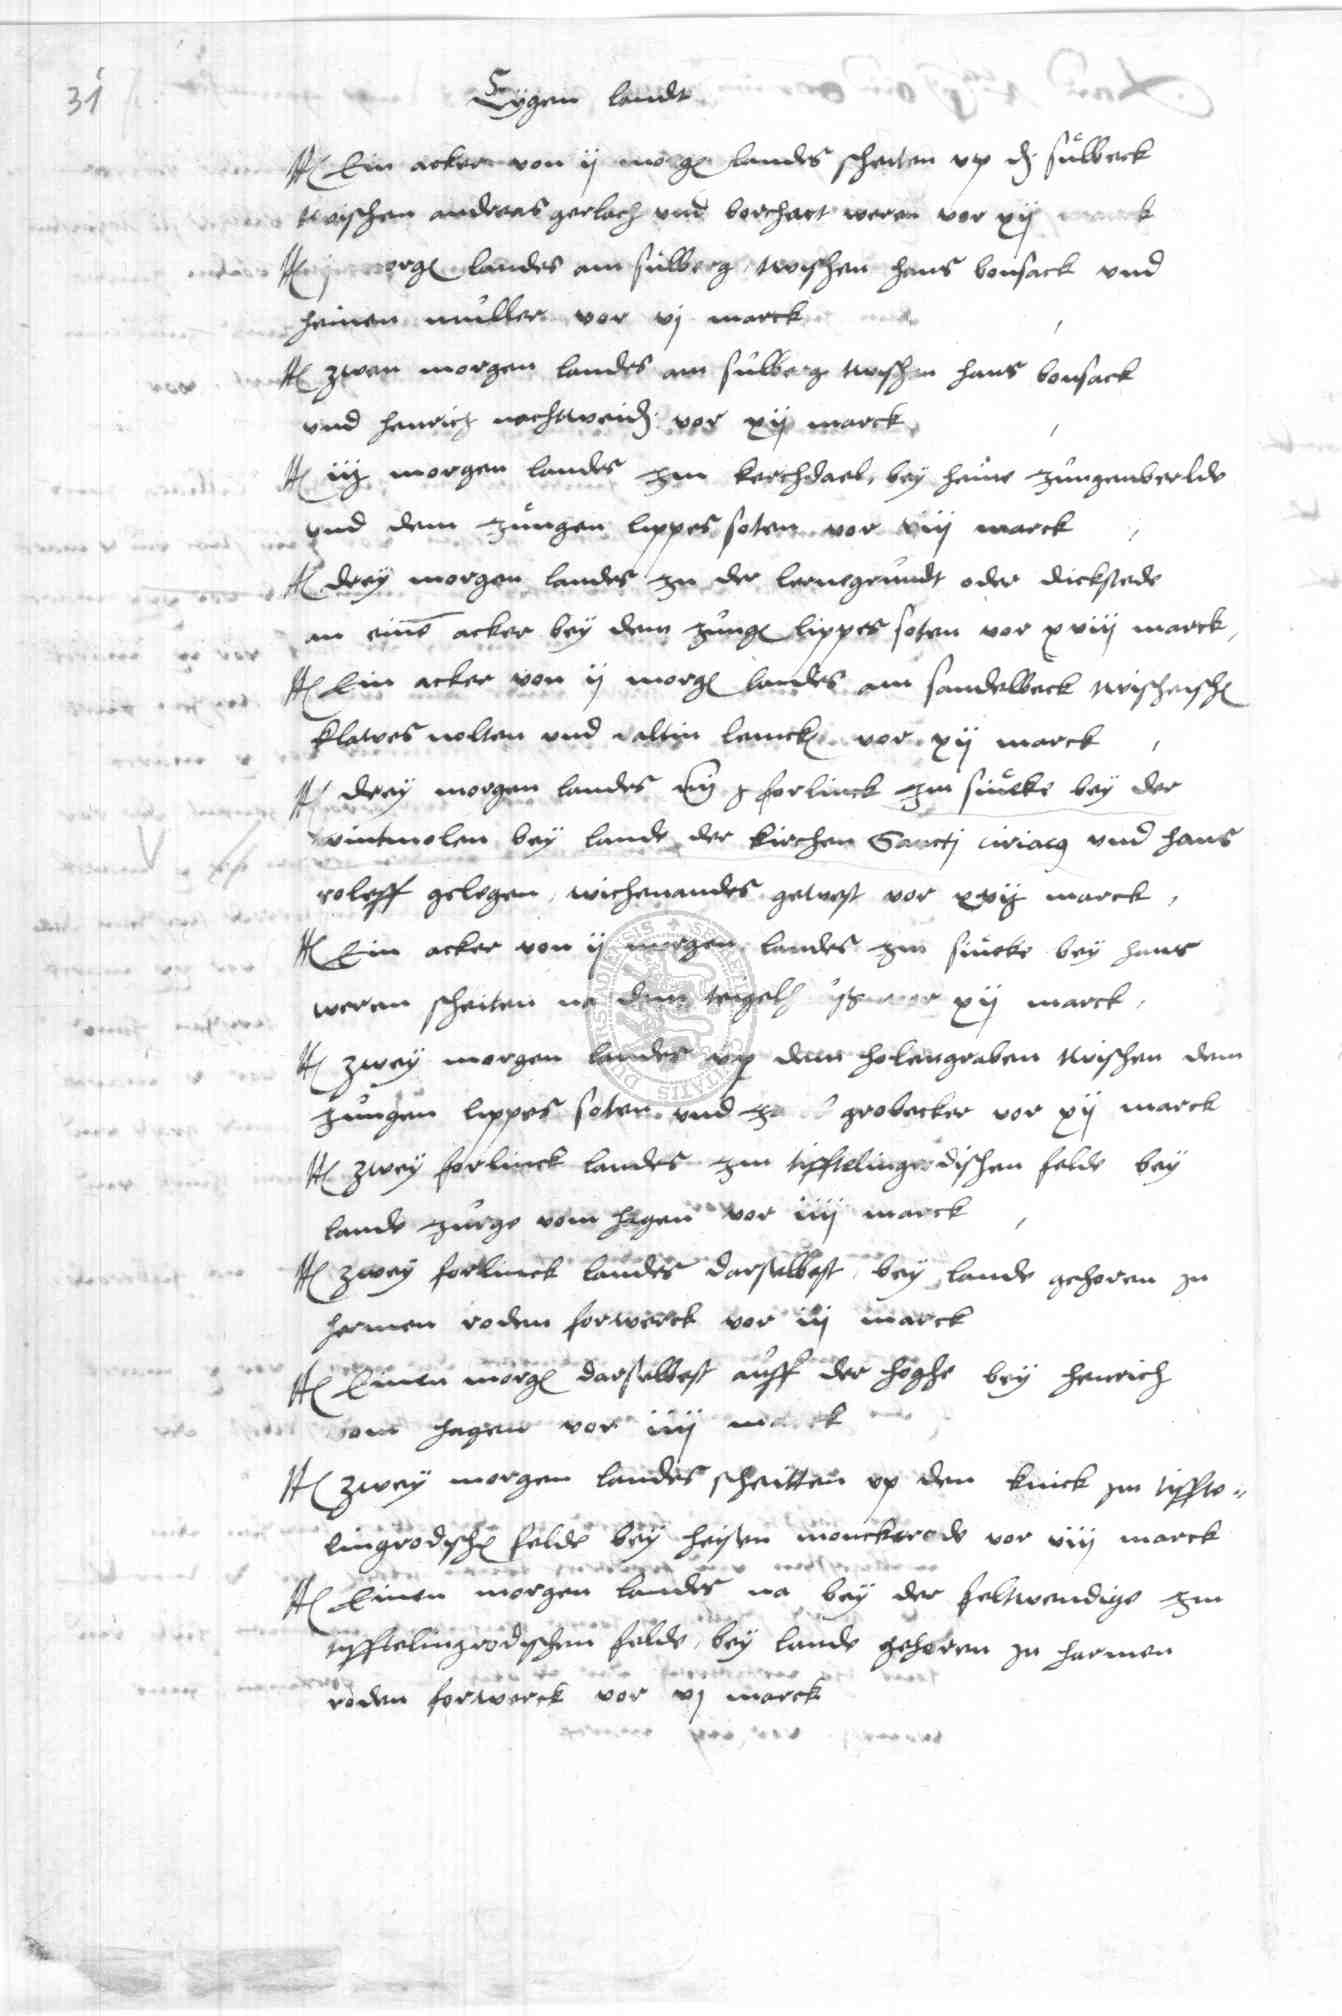 31
Eygen landt
It Ein acker von ij morg landes scheiten vp d sulbeck
twischen andreas gerlach vnd borchart weren vor xij k
It j morg landes am sulberg twischen hans bonsack vnd
heinen muller vor vj marck
It zwen morgen landes am sulberg twischen hans bonsack
vnd henrich nachtweid vor xij marck
It iij morgen landes zm kerchdael, bey heine
vnd dem zungen lippes soten vor viij marck
It drey morgen landes zu der lernegrundt oder dickstede
an eine acker bey dem zung lippes soten vor xviij marck
It Ein acker von ij morg landes am sandelbeck
klawes nolten vnd valtin lemck vor xij marck
It drey morgen landes forlinck zm siucke bey der
wintmolen bey lande der kirchen Sancti ciriacy vnd hans
roleff gelegen, wichenandes gewest vor marck
It Ein acker von ij morgen landes zm siucke bey hans
weren scheiten na dem xij marck
It zwey morgen landes vp dem holengraben twischen dem
zungen lippes soten vnd grobecker vor xij marck
It zwey forlinck landes zm tifftelingrodischen felde bey
lande zurge vom hagen vor iiij marck
It zwey forlinck landes darselbest bey lande gehoren zu
hermen roden forwerck vor iij marck
It Einen morg darselbest auff der hoghe bey henrich
vom hagen vor iiij marck
It zwey morgen landes scheitten vp den knick zm tiffte=
lingrodisch felde bey heisen monckerode vor viij marck
It Einen morgen landes na bey der feltwendige zm
tifftelingrodischen felde, bey lande gehoren zu harmen
roden forwerck vor vj marck